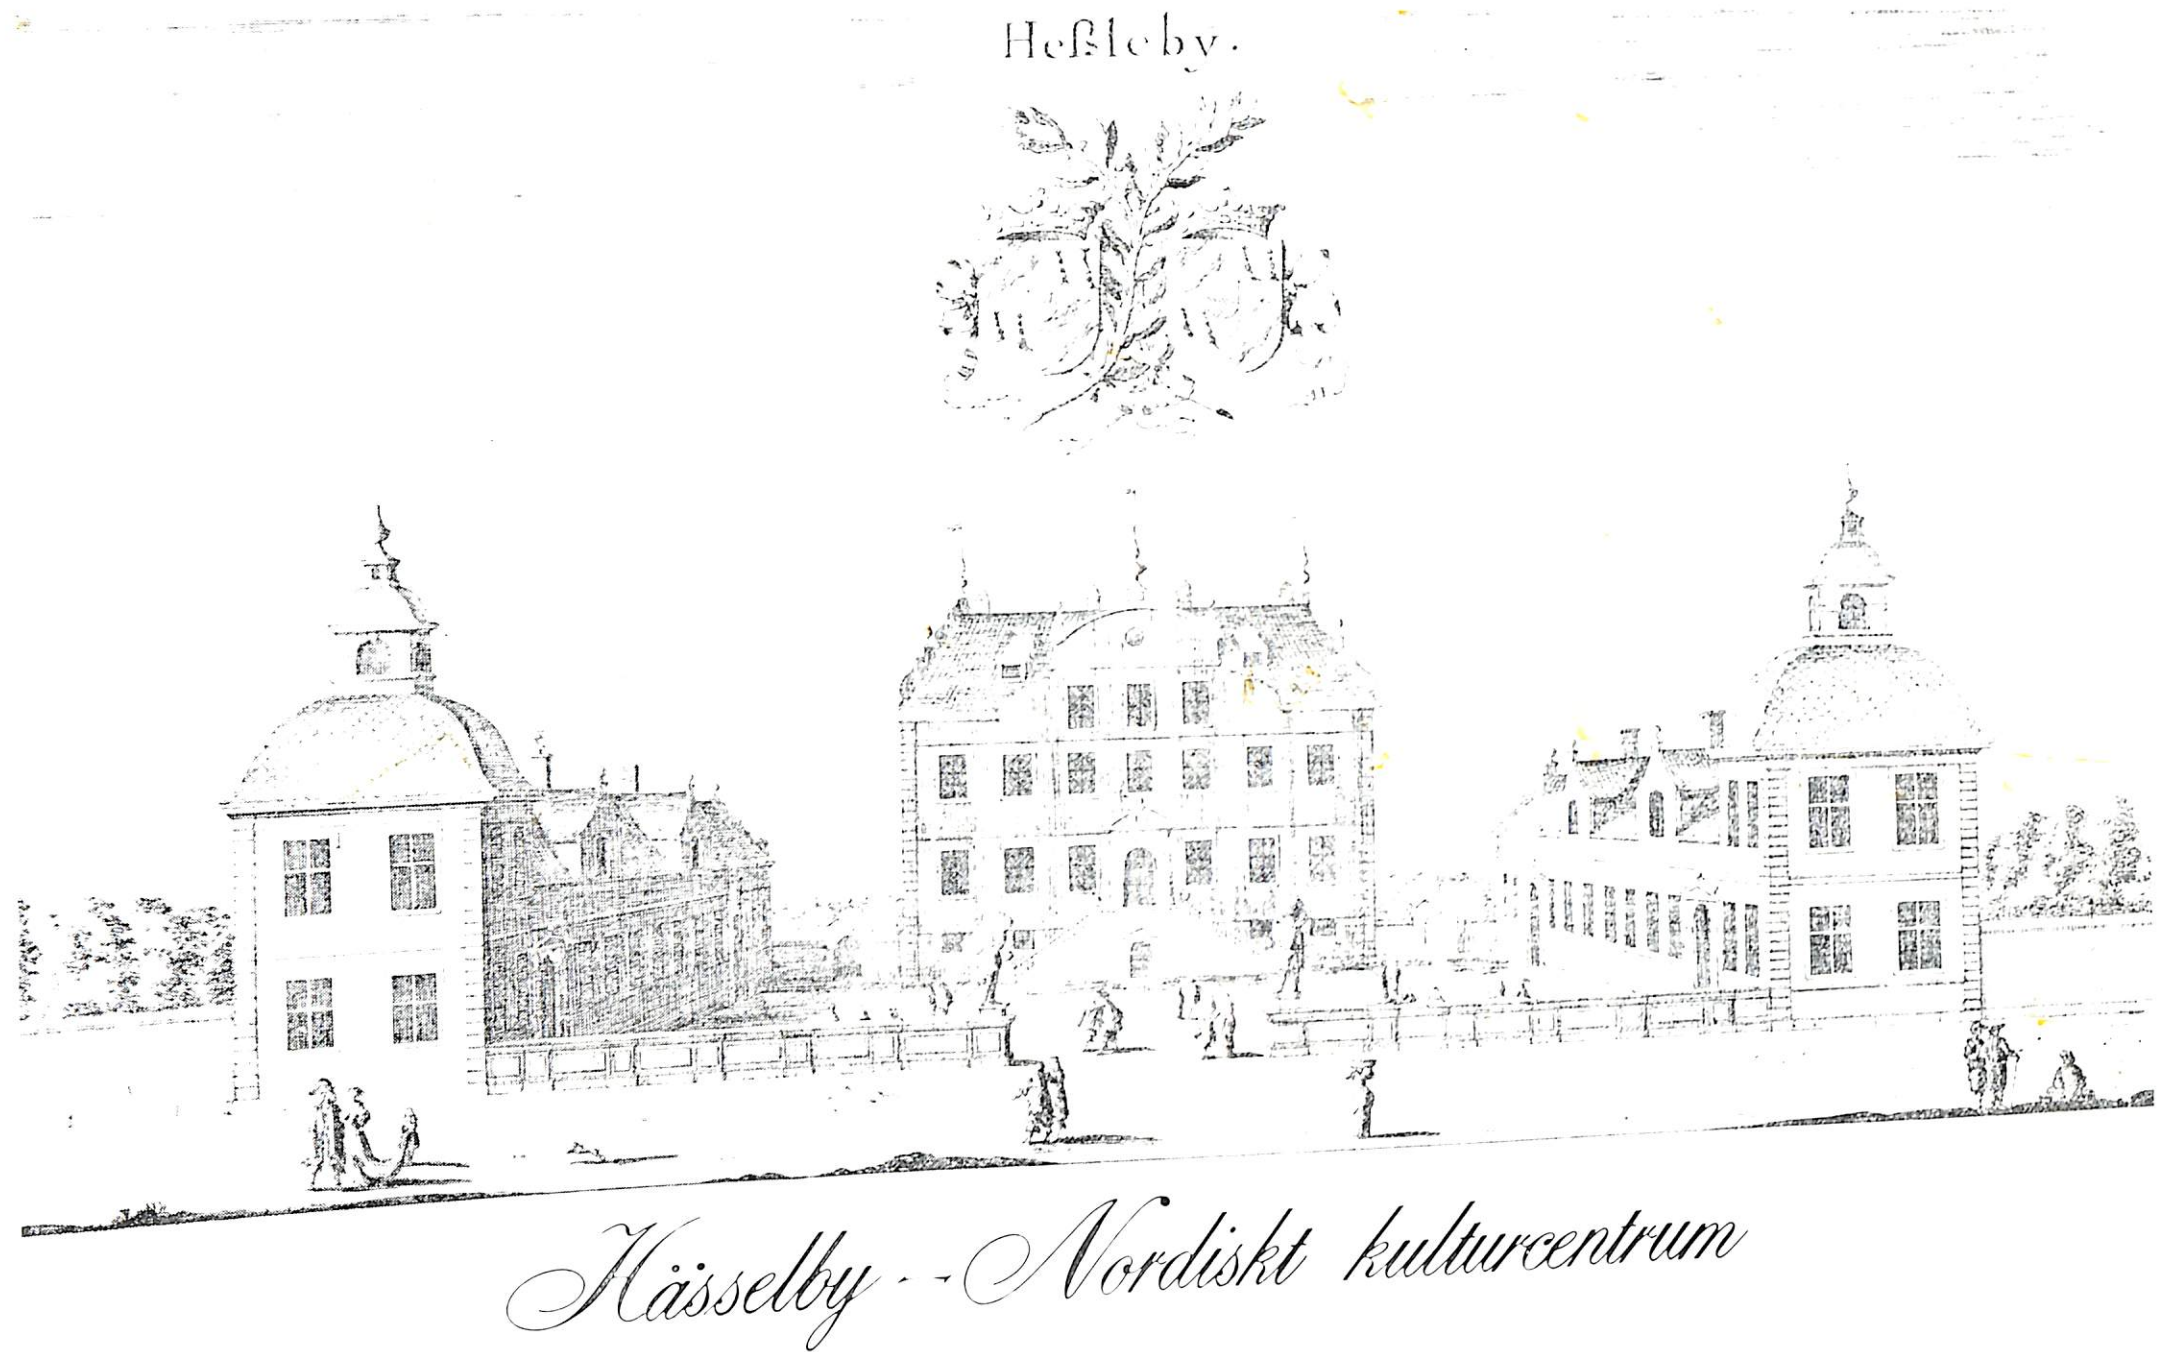 Heßleby.
Hässelby -- Nordiskt kulturcentrum